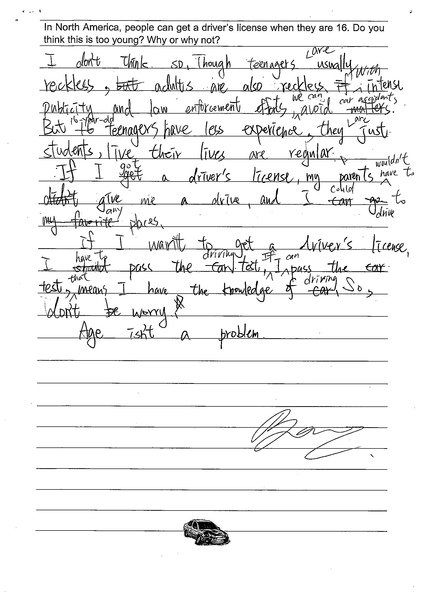 In North America, people can get a driver's license when they are 16. Do you
think this is too young? Why or why not?
I don't think so, Though teenagers are usually
reckless, but adults are also reckless, if with intense
publicity and law enforcement efforts, we can avoid car matters.
But 16 16-year-old teenagers have less experience, they are just
students, live their lives are regular.
If I get got a driver's license, my parents wouldn't have to
didn't give me a drive, and I can could go to drive
my favorite any places.
If I want to get a driver's license,
I should have to pass the car driving test, If I can pass the car
test, that means I have the knowledge of car driving. So,
don't be worry!
Age isn't a problem.